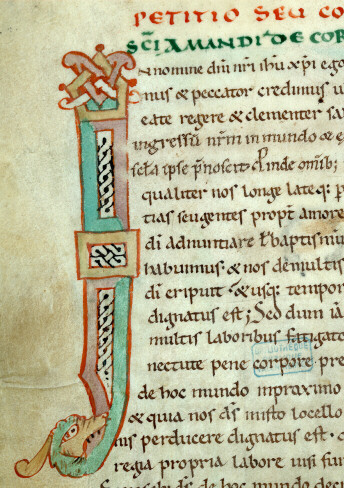 PETITIO SEU CO
SCI AMANDI DE COR
IN nomine dni nri ihu xpi ego
mus & peccator credimus u
eate regere & clementer sa
ingressu nrm in mundo & e
ipse p̄noscit Proinde omib;
qualiter nos longe lateq; p
tias seu gentes propt amore
di adnuntiare t baptismu
habuimus & nos de multis
di eripuit & usq; tempor
dignatus est; Sed dum ia
multis laboribus fatigato
nectute pene corpore pre
de hoc mundo in proximo
& quia nos ds misto locello
nis perducere dignatus est.
regia propria labore uisi fui
ds de hoc mundo